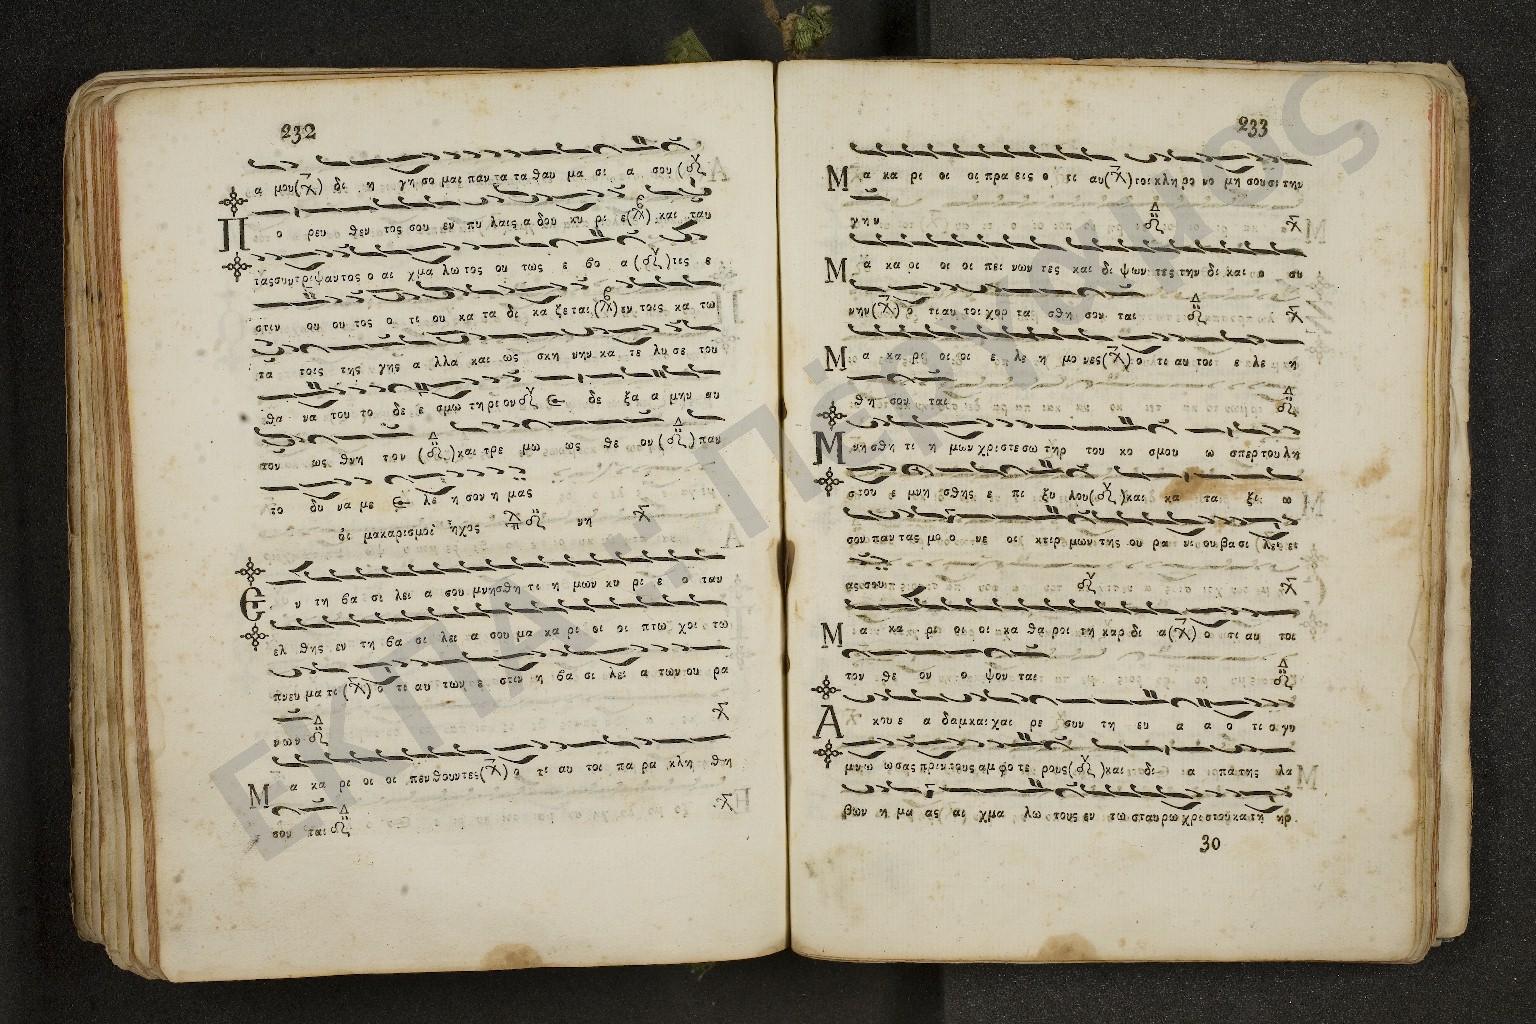 232
α μου δι η γη σο μαι παν τα τα θαυ μα σι α σου
Π ο ρευ θεν τος σου εν πυ λαις α δου κυ ρι ε και ταυ
τας συν τρι ψαντος ο αι χμα λω τος ου τως ε βο α τις ε
στιν ου ου τος ο τι ου κα τα δι κα ζε ται εν τοις κα τω
τα τοις της γης α λλα και ως σκη νην κα τε λυ σε του
θα να του το δε ε σμω τη ρι ον Ϲ δε ξα α μην αυ
τον ως θνη τον και τρε μω ως θε ον παν
το δυ να με Ε λε η σον η μας
οἱ μακαρισμοὶ ἦχος νη
Ε ν τη βα σι λει α σου μνησθη τι η μων κυ ρι ε ο ταν
ελ θης εν τη βα σι λει α σου μα κα ρι οι οι πτω χοι τω
πνευ μα τι ο τι αυ των ε στιν η βα σι λει α των ου ρα
νων
Μ α κα ρι οι οι πενθουντες ο τι αυ τοι πα ρα κλη θη
σον ται
233
Μ α κα ρι οι οι πρα εις ο τι αυ τοι κλη ρο νο μη σου σι την
γην
Μ α κα ρι οι οι πει νων τες και δι ψων τες την δι και ο συ
νην ο τι αυ τοι χορ τα σθη σον ται
Μ α κα ρι οι οι ε λε η μο νες ο τι αυ τοι ε λε η
θη σον ται
Μ νη σθη τι η μων χριστε σω τηρ του κο σμου ω σπερ του λη
στου ε μνη σθης ε πι ξυ λου και κα τα ξι ω
σον παν τας μο ο νε οι κτιρ μων της ου ρα νι ου βα σι λει ει
ας σου
Μ α κα ρι οι οι κα θα ροι τη καρ δι α ο τι αυ τοι
τον θε ον ο ψον ται
Α κου ε α δαμ και χαι ρε συν τη ευ α α ο τι ο γυ
μνω ω σας πριν τους αμ φο τε ρους και δι α πα της λα
βων η μα ας αι χμα λω τους εν τω σταυ ρω χρι στου κα τη ηρ
30
ΕΚΠΑ. Πέργαμος